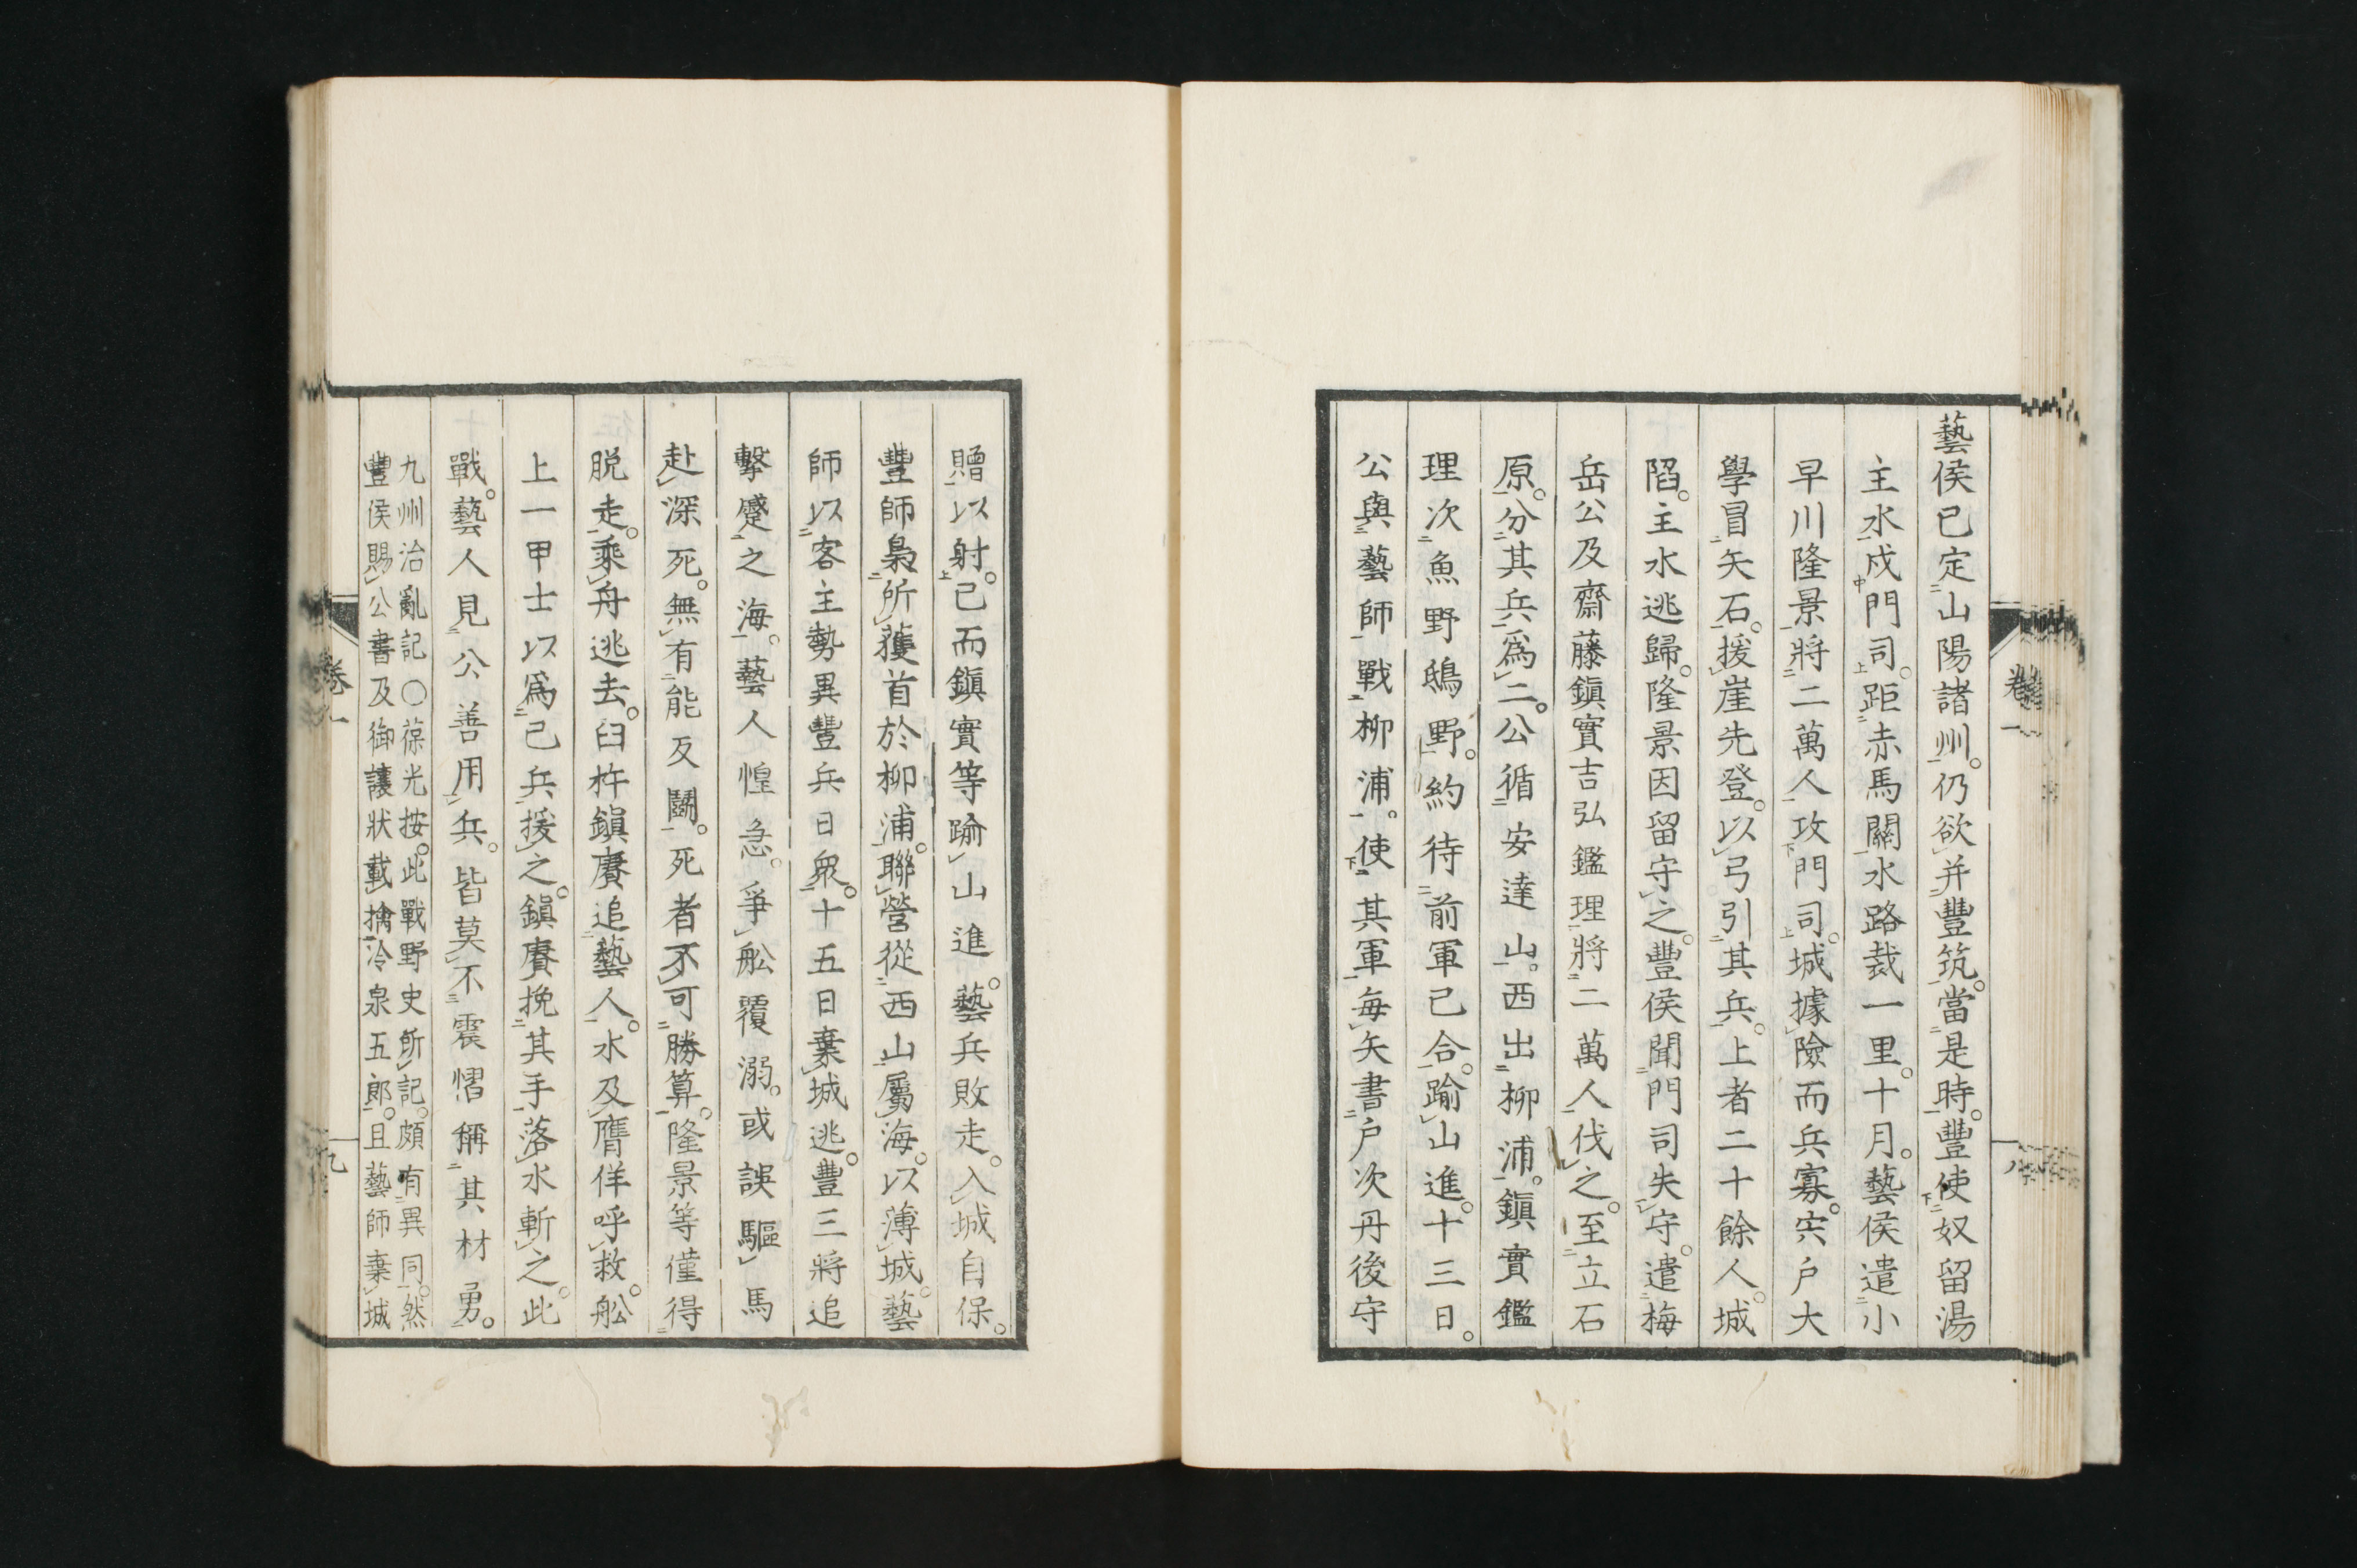 藝侯已定山陽諸州。仍欲并豐筑。當是時。豐使奴留湯
主水戍門司。距赤馬關水路裁一里。十月。藝侯遣小
早川隆景將二萬人攻門司。城據險而兵寡。宍戶大
學冒矢石。援崖先登。以弓引其兵。上者二十餘人。城
陷。主水逃歸。隆景因留守之。豐侯聞門司失守。遣梅
岳公及齋藤鎭實吉弘鑑理將二萬人伐之。至立石
原。分其兵爲二。公循安達山。西出柳浦。鎭實鑑
理次魚野鴟野。約待前軍已合。踰山進。十三日。
公與藝師戰柳浦。使其軍每矢書戶次丹後守
卷一
八
贈以射。已而鎭實等踰山進。藝兵敗走。入城自保。
豐師梟所獲首於柳浦。聯營從西山屬海。以薄城。藝
師以客主勢異豐兵日衆。十五日棄城逃。豐三將追
擊蹙之海。藝人惶急。爭舩覆溺。或誤驅馬
赴深死。無有能反鬭。死者不可勝算。隆景等僅得
脫走。乘舟逃去。臼杵鎭賡追藝人。水及膺佯呼救。舩
上一甲士以爲己兵援之。鎭賡挽其手落水斬之。此
戰。藝人見公善用兵。皆莫不震慴稱其材勇。
九州治亂記○葆光按。此戰野史所記。頗有異同。然
豐侯賜公書及御讓狀載擒冷泉五郎。且藝師棄城
卷一
九